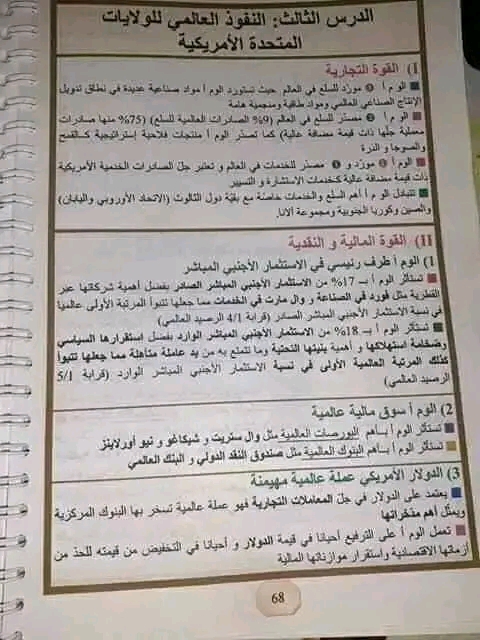 الدرس الثالث: النفوذ العالمي للولايات
المتحدة الأمريكية
I) القوة التجارية
الوم أ ❶ مورّد للسلع في العالم حيث تستورد الوم أ مواد صناعية عديدة في نطاق تدويل
الإنتاج الصناعي العالمي ومواد طاقية ومنجمية هامة
الوم أ مصدّر للسلع في العالم (9% الصادرات العالمية للسلع) (75% منها صادرات
معملية جلّها ذات قيمة مضافة عالية) كما تصدّر الوم أ منتجات فلاحية إستراتيجية كالقمح
والصوجا و الذرة
الوم أ ❶ مورّد و ❶ مصدّر للخدمات في العالم و تعتبر جلّ الصادرات الخدمية الأمريكية
ذات قيمة مضافة عالية كخدمات الاستشارة و التسيير
تتبادل الوم أ أهم السلع والخدمات خاصة مع بقيّة دول الثالوث (الاتحاد الأوروبي واليابان)
والصين وكوريا الجنوبية ومجموعة ألانا.
II) القوة المالية و النقدية
1) الوم أ طرف رئيسي في الاستثمار الأجنبي المباشر
تستأثر الوم أ بـ 17% من الاستثمار الأجنبي المباشر الصادر بفضل أهمية شركاتها عبر
القطرية مثل فورد في الصناعة و وال مارت في الخدمات مما جعلها تتبوأ المرتبة الأولى عالميا
في نسبة الاستثمار الأجنبي المباشر الصادر (قرابة 4/1 الرصيد العالمي)
تستأثر الوم أ بـ 18% من الاستثمار الأجنبي المباشر الوارد بفضل استقرارها السياسي
وضخامة استهلاكها و أهمية بنيتها التحتية وما تتمتع به من يد عاملة متأهلة مما جعلها تتبوأ
كذلك المرتبة العالمية الأولى في نسبة الاستثمار الأجنبي المباشر الوارد (قرابة 5/1
الرصيد العالمي)
2) الوم أ سوق مالية عالمية
تستأثر الوم أ بـأهم البورصات العالمية مثل وال ستريت و شيكاغو و نيو أورلاينز
تستأثر الوم أ بـأهم البنوك العالمية مثل صندوق النقد الدولي و البنك العالمي
3) الدولار الأمريكي عملة عالمية مهيمنة
يعتمد على الدولار في جلّ المعاملات التجارية فهو عملة عالمية تسخر بها البنوك المركزية
ويمثل أهم مدخراتها
تعمل الوم أ على الترفيع أحيانا في قيمة الدولار و أحيانا في التخفيض من قيمته للحد من
أزماتها الاقتصادية واستقرار موازناتها المالية
68